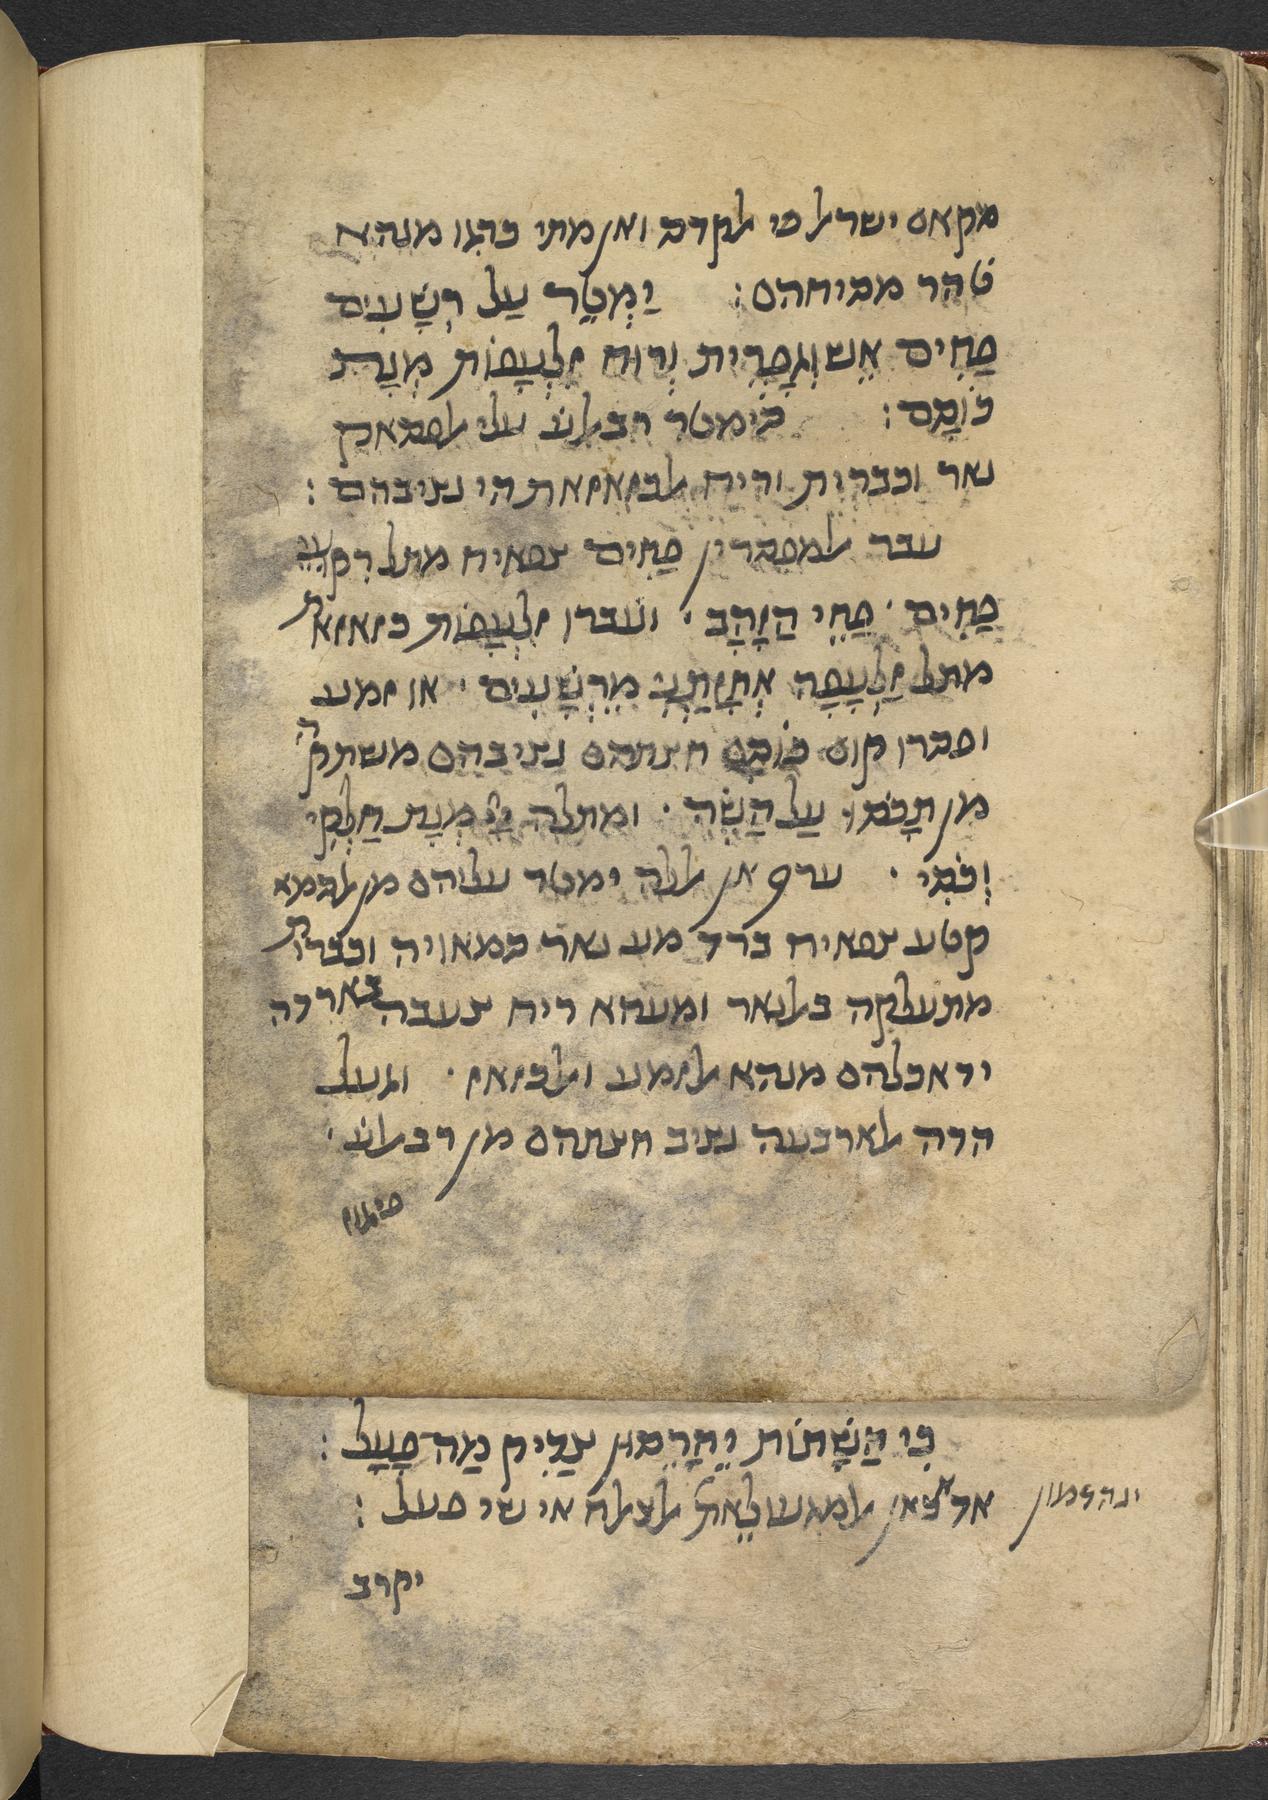 מקאם ישראל פי לקדם ואן מתי כרגו מנהא
טהר מביחהם : יַמְטֵר עַל רְשָׁעִים
פַּחִים אֵשׁ וְגָפְרִית וְרוּחַ זִלְעָפוֹת מְנָת
כּוֹסָם : פימטר רב אלע עלי לפסאק
נאר וכברית וריח לבזאזאת הי נציבהם :
עבר למפסרין פַּחִים צפאיח מתל רִקֻּעֵי
פַחִים ׳ פַּחֵי הַזָּהָב ׳ ועברו זִלְעָפוֹת בזאזאת
מתל זַלְעָפָה אֲחָזַתְנִי מֵרְשָׁעִים ׳ או זמע
ופסרו קום כּוֹסָם חצתהם נציבהם משתקה
מן תָּכֹסּוּ עַל הַשֶּׂה ׳ ומתלה מְנָת חֶלְקִי
וְכוֹסִי ׳ ערף אן ללה ימטר עליהם מן לסמא
קטע צפאיח ברד מע נאר סמאויה וכברית
מתעלקה באלנאר ומעהא ריח צעבה בארדה
ידאכלהם מנהא לזמע ולבזאז ׳ וגעל
הדה לארבעה נציב חצתהם מן רב אלע ׳
כִּי הַשָּׁתוֹת יֵהָרֵסוּן צַדִּיק מַה פָּעָל :
אד אצאן למגשולאת לצלח אי שי פעל :
ינהדמון
יקרב